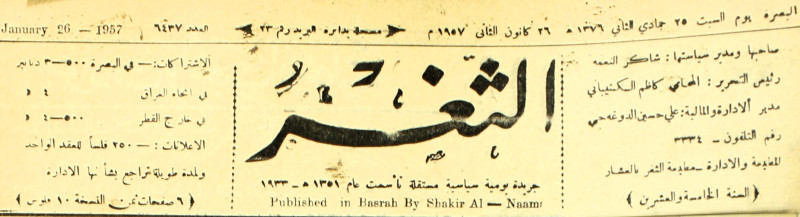 البصرة يوم السبت ٢٥ جمادي الثاني ١٣٧٦ هـ ٢٦ كانون الثاني ١٩٥٧ م مسجلة بدائرة البريد رقم ٢٣ العدد ٦٤٣٧ January 26 - 1957
صاحبها ومدير سياستها : شاكر النعمه
رئيس التحرير : المحامي كاظم السكتيباني
مدير الادارة والمالية : علي حسين الدوغه جي
رقم التلفون - ٣٣٣٤
المطبعة والادارة - مطبعة الثغر بالعشار
( السنة الخامسة والعشرين )
الثغر
جريدة يومية سياسية مستقلة تأسست عام ١٣٥١ هـ - ١٩٣٣
Published in Basrah By Shakir Al - Naama
الاشتراكات : - في البصرة ٥٠٠-٣ دنانير
في انحاء العراق ٤ »
في خارج القطر ٥٠٠-٤ »
الاعلانات : - ٢٥٠ فلساً للعقد الواحد
ولمدة طويلة تراجع بشأنها الادارة
( ٦ صفحات ثمن النسخة ١٠ فلوس )